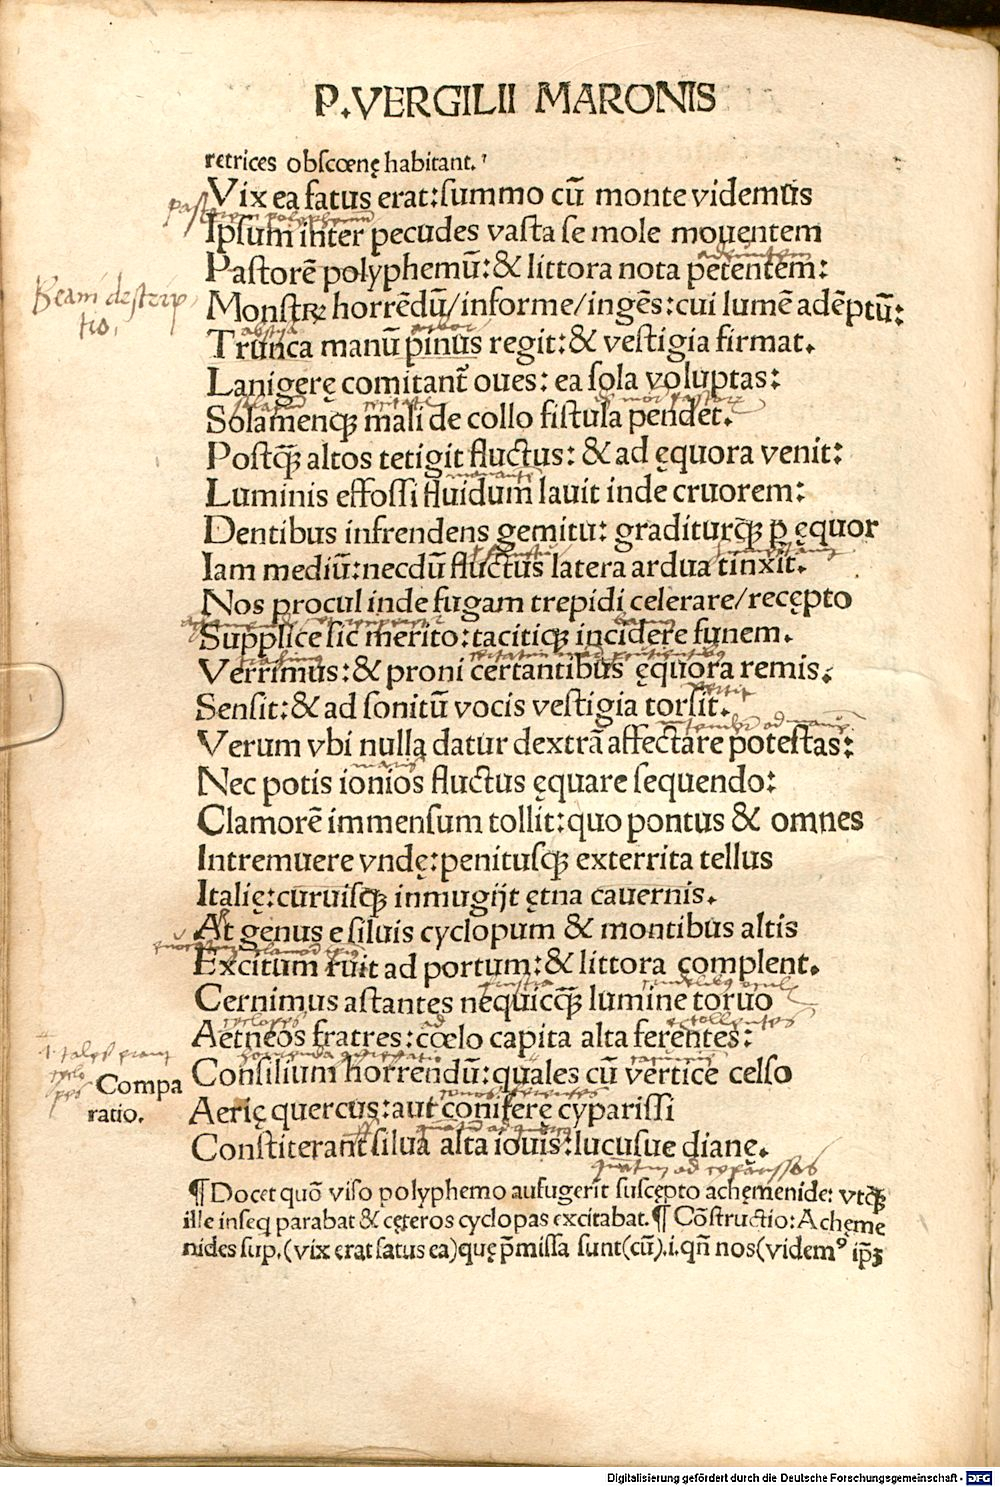 P.VERGILII MARONIS
retrices obscœnę habitant.
Vix ea fatus erat:summo cū monte videmus
pastorem polyphemū
Ipsum inter pecudes vasta se mole mouentem
Pastorē polyphemū:& littora nota petentem:
descrip
tio,
Monstrꝝ horrēdū/informe/ingēs:cui lumē adēptū:
arbor
Trunca manū pinus regit:& vestigia firmat.
Lanigerę comitant̄ oues: ea sola voluptas:
Solamenqꝫ mali de collo fistula pendet.
Postq̄ꝫ altos tetigit fluctus: & ad ęquora venit:
Luminis effossi fluidum lauit inde cruorem:
Dentibus infrendens gemitu: graditurqꝫ ꝑ ęquor
Iam mediū:necdū fluctus latera ardua tinxit.
Nos procul inde fugam trepidi celerare/recępto
Supplice sic merito:tacitiqꝫ incidere funem.
Verrimus:& proni certantibus ęquora remis.
Sensit:& ad sonitū vocis vestigia torsit.
Verum vbi nulla datur dextrā affectare potestas:
maris
Nec potis ionios fluctus ęquare sequendo:
Clamorē immensum tollit:quo pontus & omnes
Intremuere vndę:penitusqꝫ exterrita tellus
Italię:curuisqꝫ inmugijt ętna cauernis.
At genus e siluis cyclopum & montibus altis
Excitum ruit ad portum:& littora complent.
frustra
Cernimus astantes nequicq̄ꝫ lumine toruo
cyclopes ad extollentes
Aetneos fratres:cœlo capita alta ferentes:
horrenda
Consilium horrendū:quales cū vertice celso
Compa
ratio.
Aerię quercus:aut conifere cyparissi
quantū ad quercus
Constiterant silua alta iouis:lucusue dianę.
quātum ad cyparissos
¶Docet quō viso polyphemo aufugerit suscępto achęmenide: vtqꝫ
ille inseq parabat & cęteros cyclopas excitabat.¶ Cōstructio:Achęme
nides sup.(vix erat fatus ea)quę p̄missa sunt(cū).i.qn̄ nos(videmꝰ ip̄ꝫ
Digitalisierung gefördert durch die Deutsche Forschungsgemeinschaft - DFG